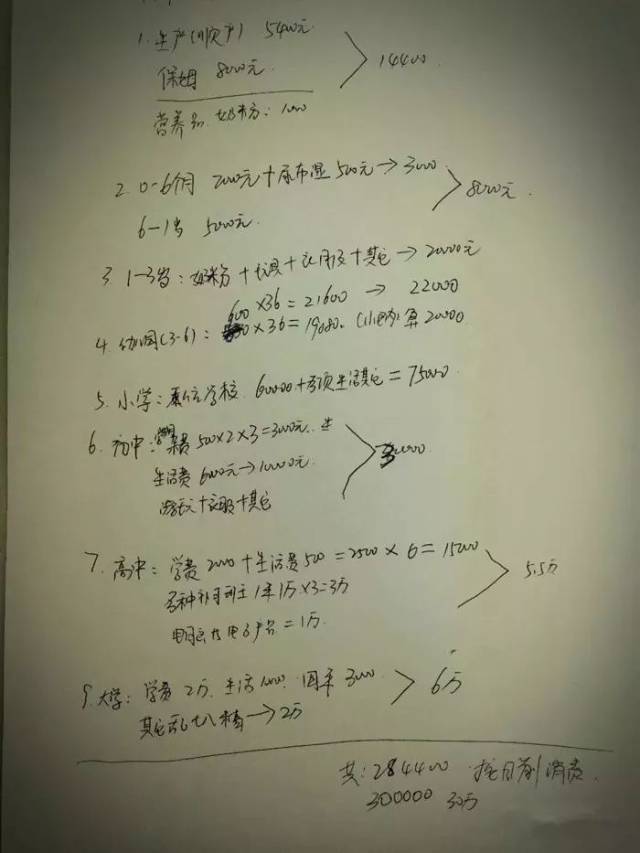 1. 生产(顺产) 5400元
保姆 8000元 14400
营养品 奶粉: 1000
2. 0-6个月 2000元+尿布湿 500元→3000
8000元.
6-1岁 5000元
3. 1-3岁: 奶粉+玩具+衣服+其它→20000元
600×36=21600 → 22000
4. 幼园(3-6): ×36=19080. 算20000
5. 小学: 学校. 60000+各项生活其它=75000
6. 初中: 学费 500×2×3=3000元. 生
生活费 6000元→10000元. 0000
+衣服+其它
7. 高中: 学费 2000+生活费500=2500×6=15000
各种补习班 1年1万×3=3万 5.5万
电脑 电子产品=1万.
9. 大学: 学费 2万. 生活1000. 回来 3000 6万
其它乱七八糟→2万
共: 284400 按目前消费.
300000 30万